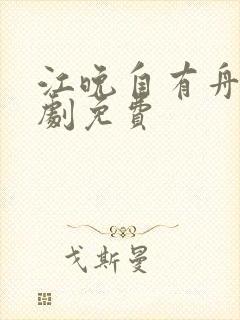 江晚自有舟
劇免費
戈斯曼